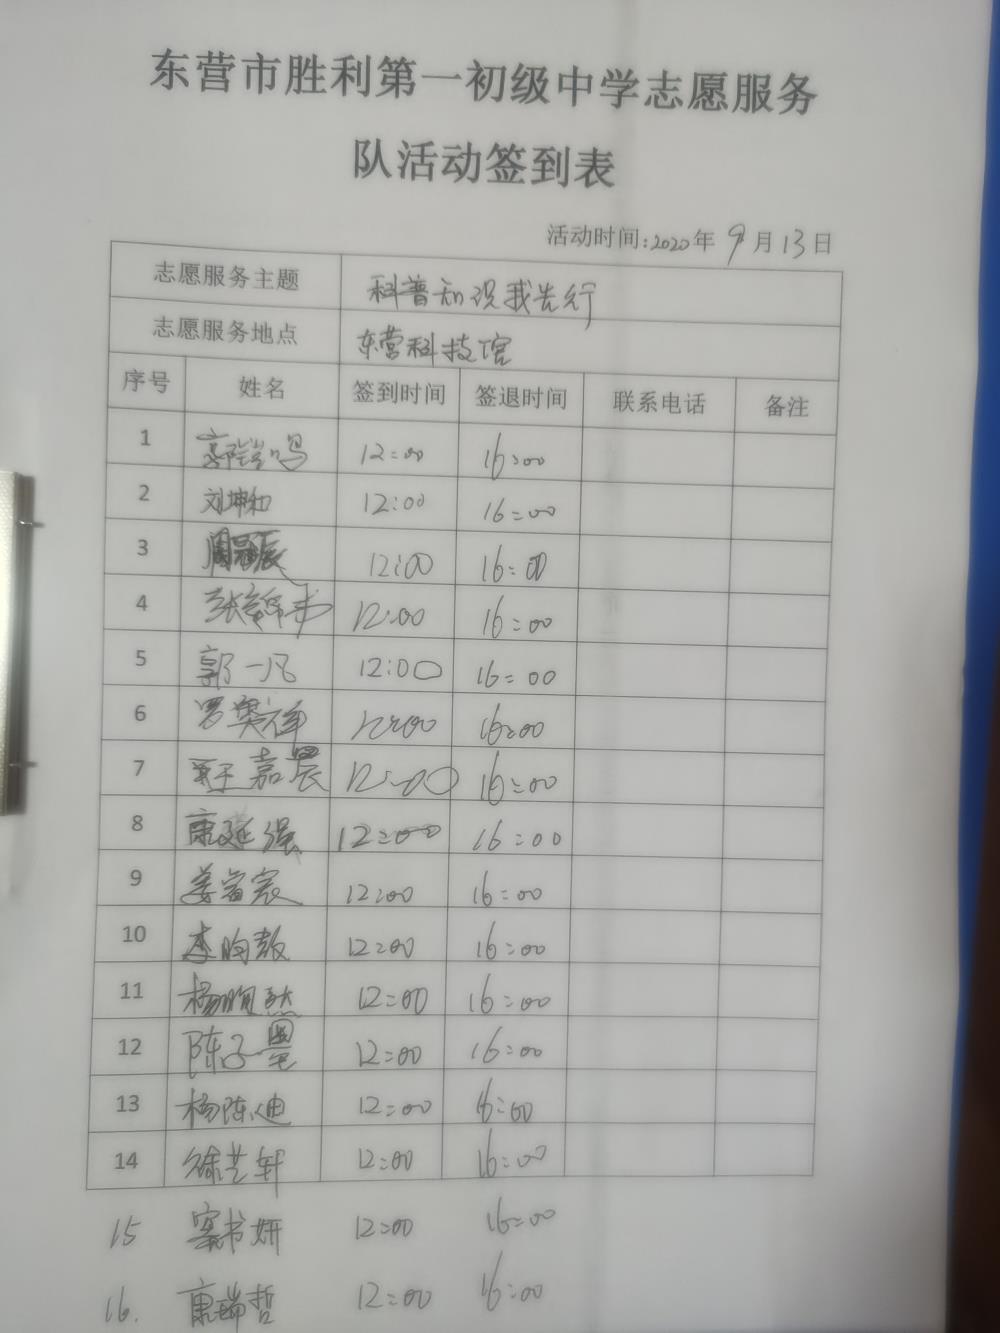 东营市胜利第一初级中学志愿服务
队活动签到表
活动时间:2020年 9月13日
志愿服务主题 科普知识我先行
志愿服务地点 东营科技馆
序号 姓名 签到时间 签退时间 联系电话 备注
1 12:00 16:00
2 刘坤和 12:00 16:00
3 12:00 16:00
4 12:00 16:00
5 郭一凡 12:00 16:00
6 罗奥祥 12:00 16:00
7 嘉晨 12:00 16:00
8 康延强 12:00 16:00
9 姜宸 12:00 16:00
10 李昀 12:00 16:00
11 杨 12:00 16:00
12 陈子墨 12:00 16:00
13 杨陈迪 12:00 16:00
14 徐艺轩 12:00 16:00
15 书妍 12:00 16:00
16. 康瑞哲 12:00 16:00